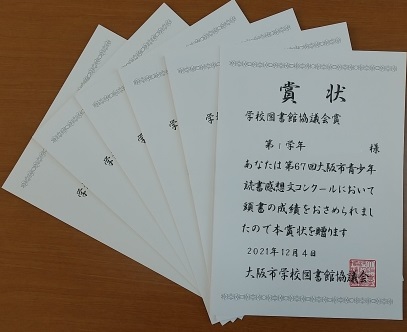 賞状
学校図書館協議会賞
第1学年 様
あなたは第67回大阪市青少年
読書感想文コンクールにおいて
頭書の成績をおさめられまし
たので本賞状を贈ります
2021年12月4日
大阪市学校図書館協議会
学
学
学
学
学